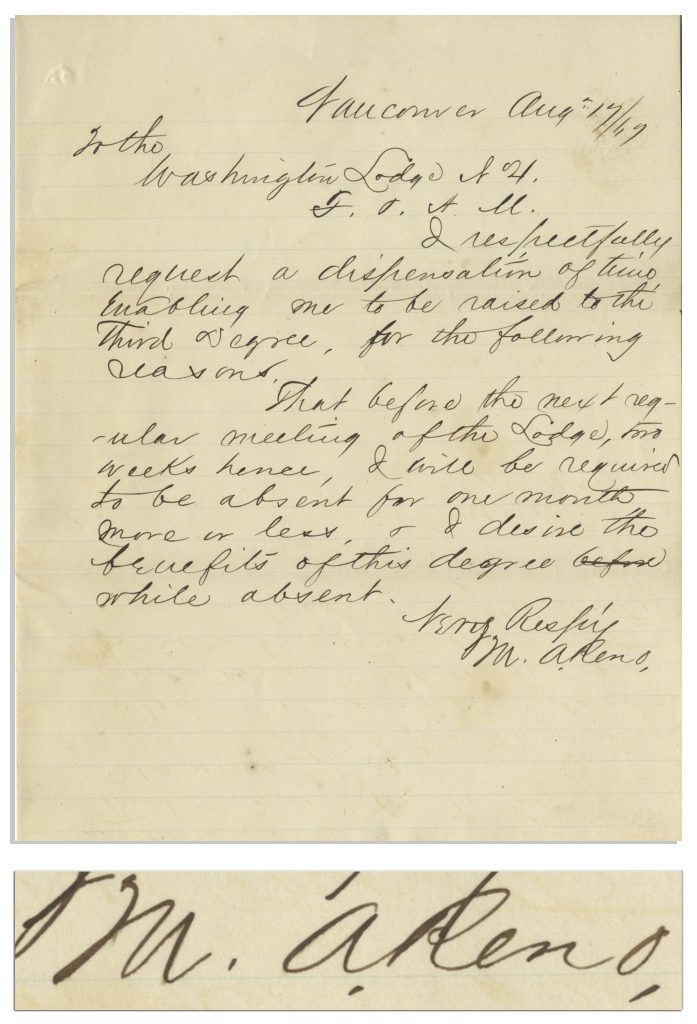 Vancouver Aug 17/67
To the
Washington Lodge N 4.
F. & A. M.
I respectfully
request a dispensation of time
Enabling me to be raised to the
Third Degree, for the following
reasons.
That before the next reg-
-ular meeting of the Lodge, two
weeks hence, I will be required
to be absent for one month
more or less, & I desire the
benefits of this degree before
while absent.
Very Respy
M. A. Reno,
M. A. Reno,